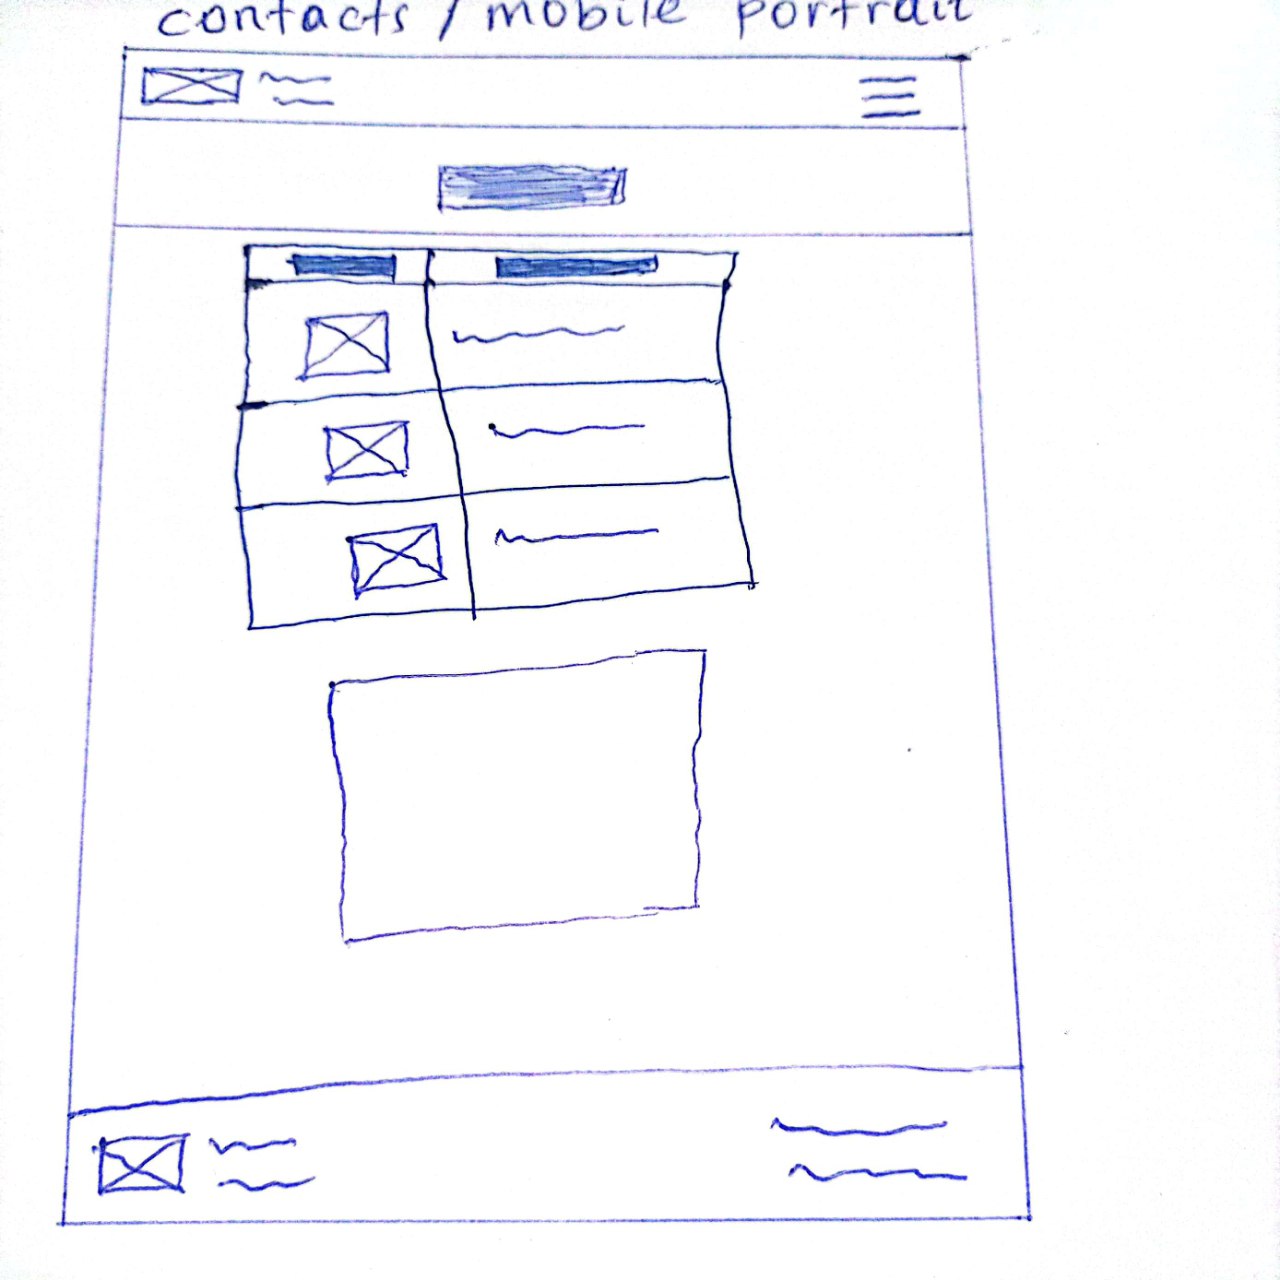 contacts / mobile portrait